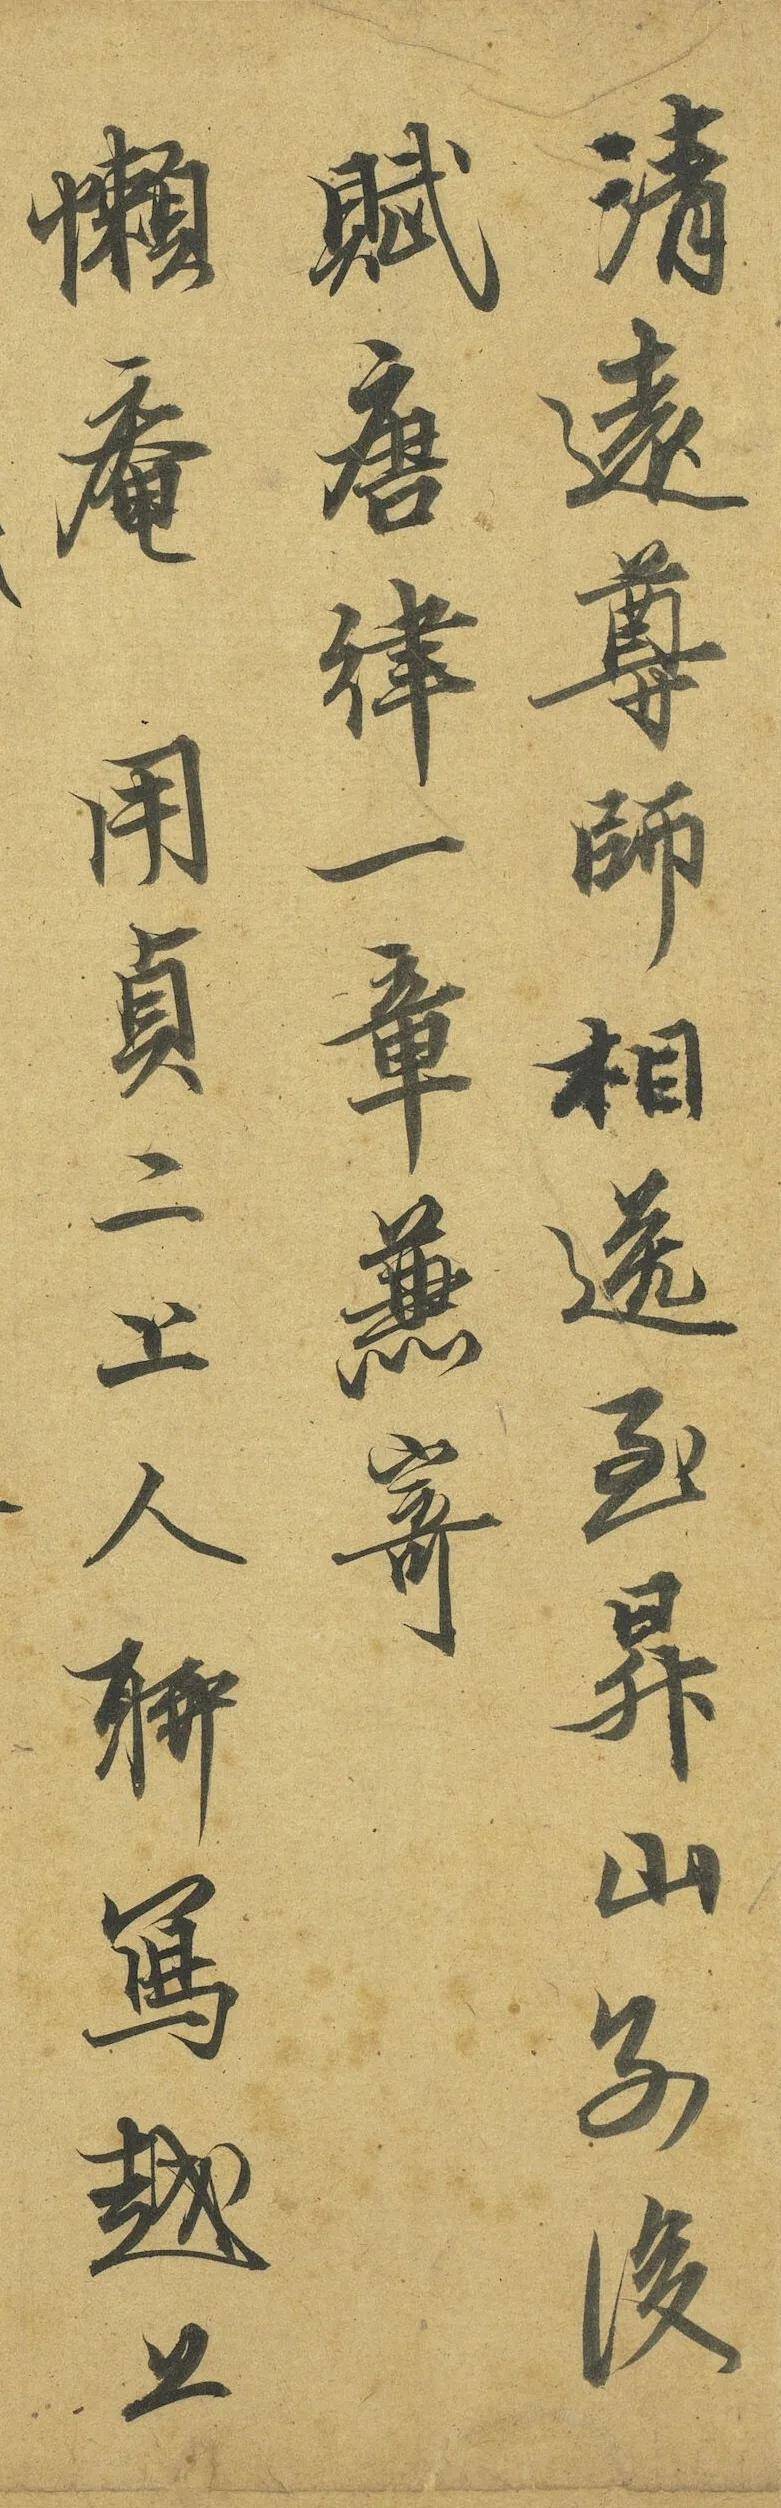 清遠尊師相送至昇山別後
賦唐律一章兼寄
懶庵 用貞二上人聊寫越上